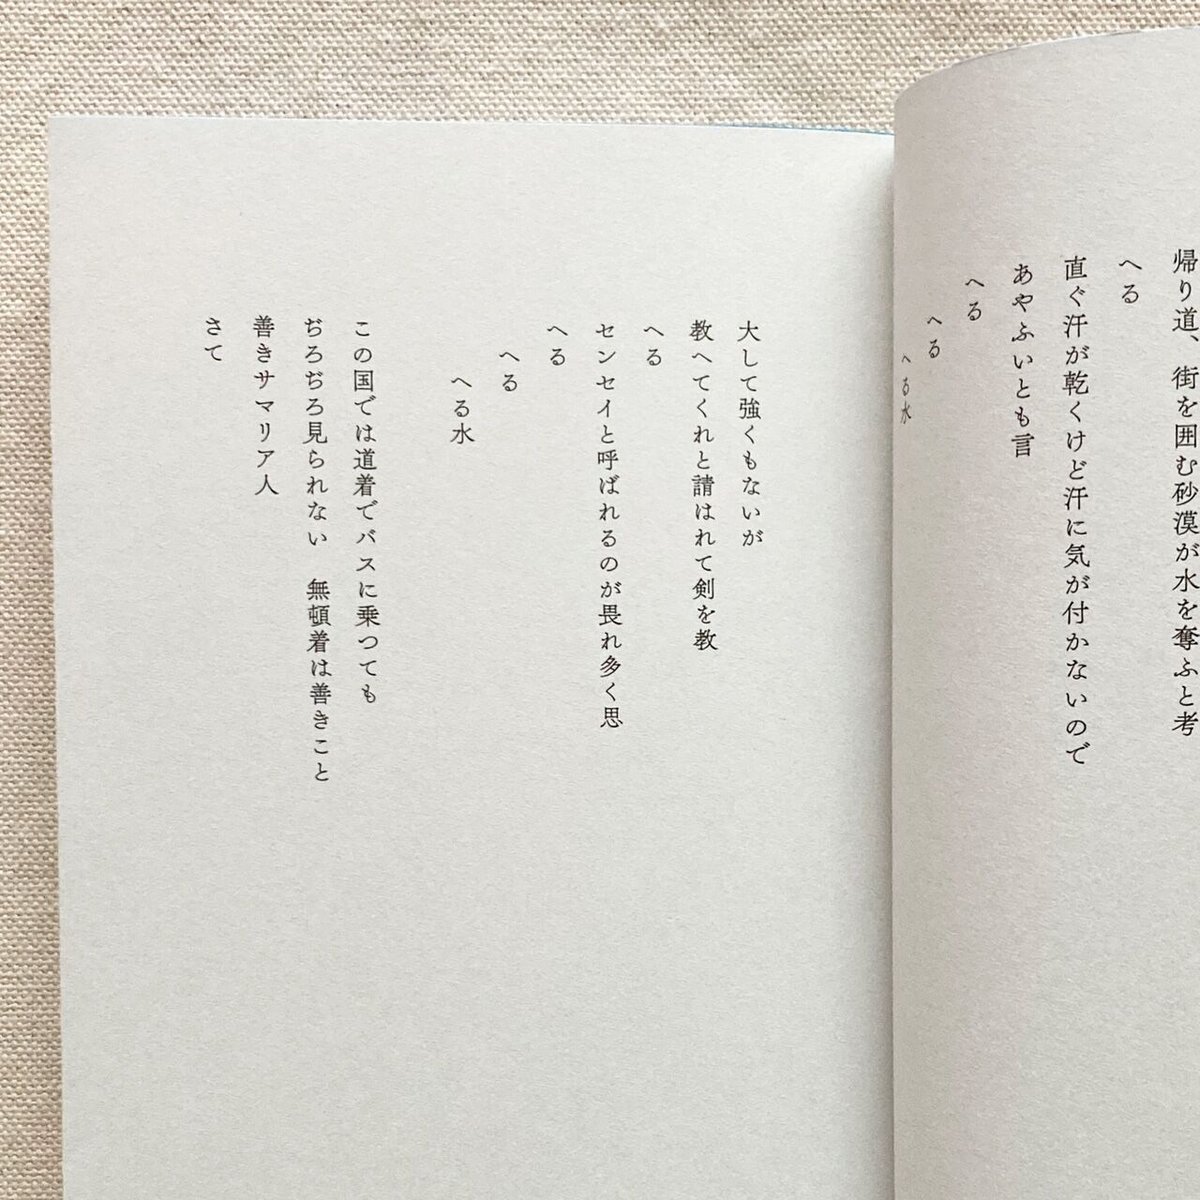 帰り道、街を囲む砂漠が水を奪ふと考
へる
直ぐ汗が乾くけど汗に気が付かないので
あやふいとも言
へる
へる
へる水
大して強くもないが
教へてくれと請はれて剣を教
へる
センセイと呼ばれるのが畏れ多く思
へる
へる
へる水
この国では道着でバスに乗つても
ぢろぢろ見られない　無頓着は善きこと
善きサマリア人
さて